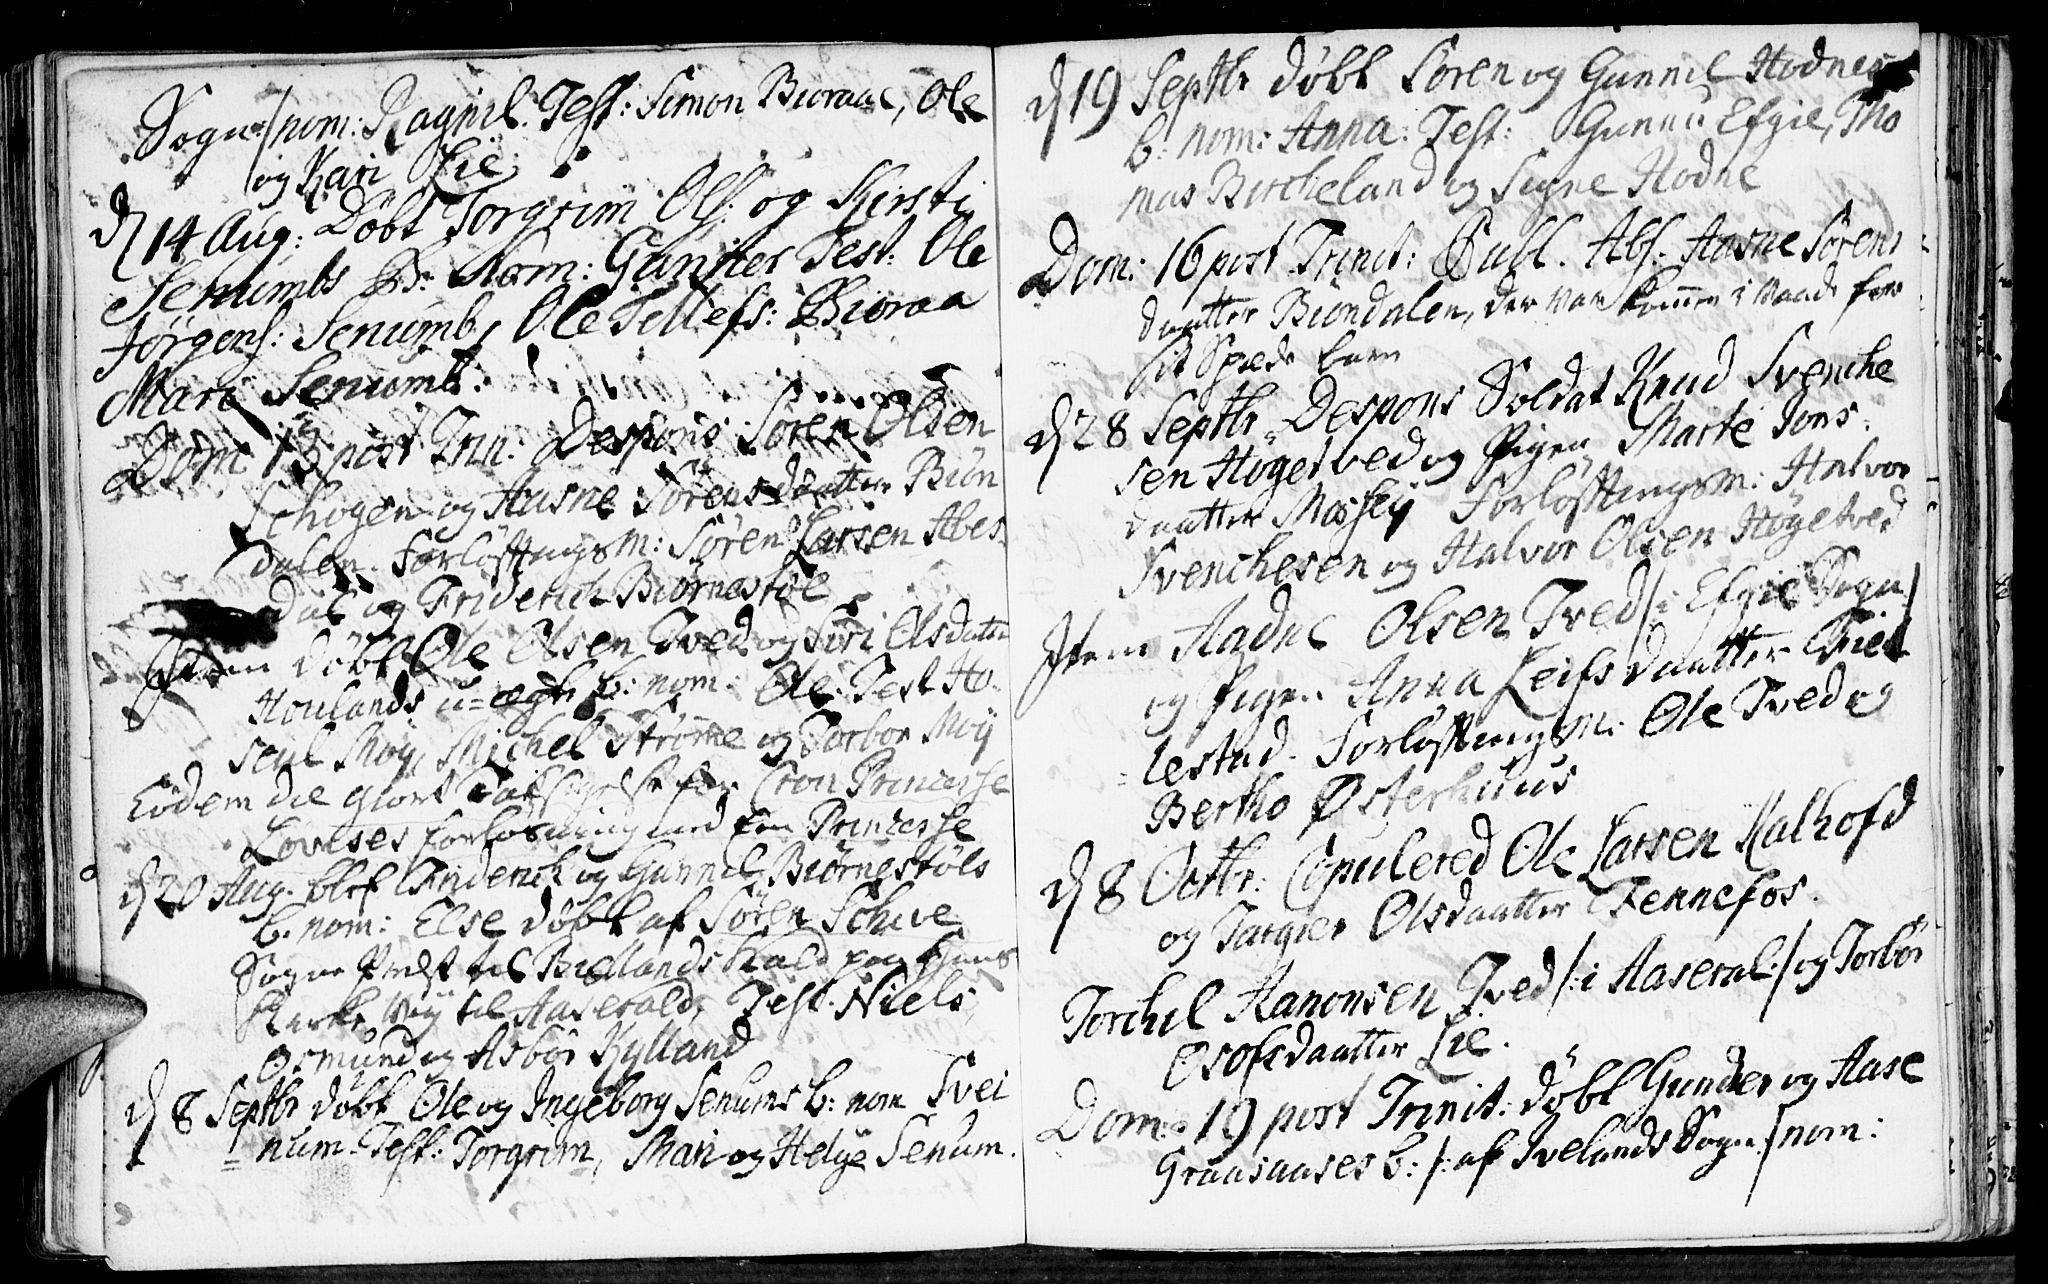 Sogn /nom: Ragnil. Test: Simon Bioraae, Ole
og Kari Lie
d 14 Aug: Döbt Torgrim Ols: og Kirsti
Senumbs B: Nom: Gunder Test: Ole
Jörgens: Senumb, Ole Tellefs: Bioraa
Mari Senumb.
Dom 13 post Trin: Despons: Sören Olsen
Schogen og Aasne Sörensdaatter Biön
dalen. Forlöftningsm: Sören Larsen Abes
dal og Friderich Biörnestöle
Item döbt Ole Olsen Tved og Siri Olsdatter
Houlands u-ægte b: nom: Ole. Test Ho-
seul Moy, Michel Ströme og Torbor Moÿ
Eodem die giort Tacksigelse for Cron Princesse
Lovises forlösning med een Princesse
d 20 Aug. blef Friderich og Gunnil Biörnestöls
b. nom: Else döbt af Sören Schive
Sogne Præst til Biellands Kald paa hans
Kirke Vey til Aaserald, Test. Niels,
Osmund og Asbör Kylland
d 8 Septbr döbt Ole og Ingeborg Senums b: nom Svei
= num. Test: Torgrim, Mari og Helge Senum.
d 19 Septbr döbt Sören og Gunnil Hodnes
b: nom: Anna. Test: Gunnu Efgie, Tho
mas Bircheland og Signe Hodne
Dom: 16 post Trinit: Publ. Abs. Aasne Sörens
daatter Biöndalen, der var kommen i Vaade for
sit Spæde barn
d 28 Septbr Despons Soldat Knud Svenche
sen Högetved og Pigen Marte Jons:
daatter Mosseÿ Forlöftningsm: Halvor
Svenchesen og Halvor Olsen Högetved
Item Aadne Olsen Tved /: i Efgie Sogn /
og Pigen Anna Leifsdaatter Fiel
= lestad. Forlöftningsm: Ole Tved og
Bertho Østerhuus
d 8 Octbr: Copulered Ole Larsen Kalhofd
og Targier Olsdaatter Fennefos.
Torchel Aanonsen Tved /: i Aaseral :/ og Torbör
Osofsdaatter Lie.
Dom: 19 post Trinit: döbt Gunder og Aase
Graasaases b: /: af Ivelands Sogn / nom: